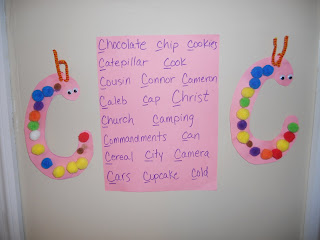 Chocolate chip cookies
Catepillar Cook
Cousin Connor Cameron
Caleb Cap Christ
Church Camping
Commandments Can
Cereal City Camera
Cars Cupcake Cold